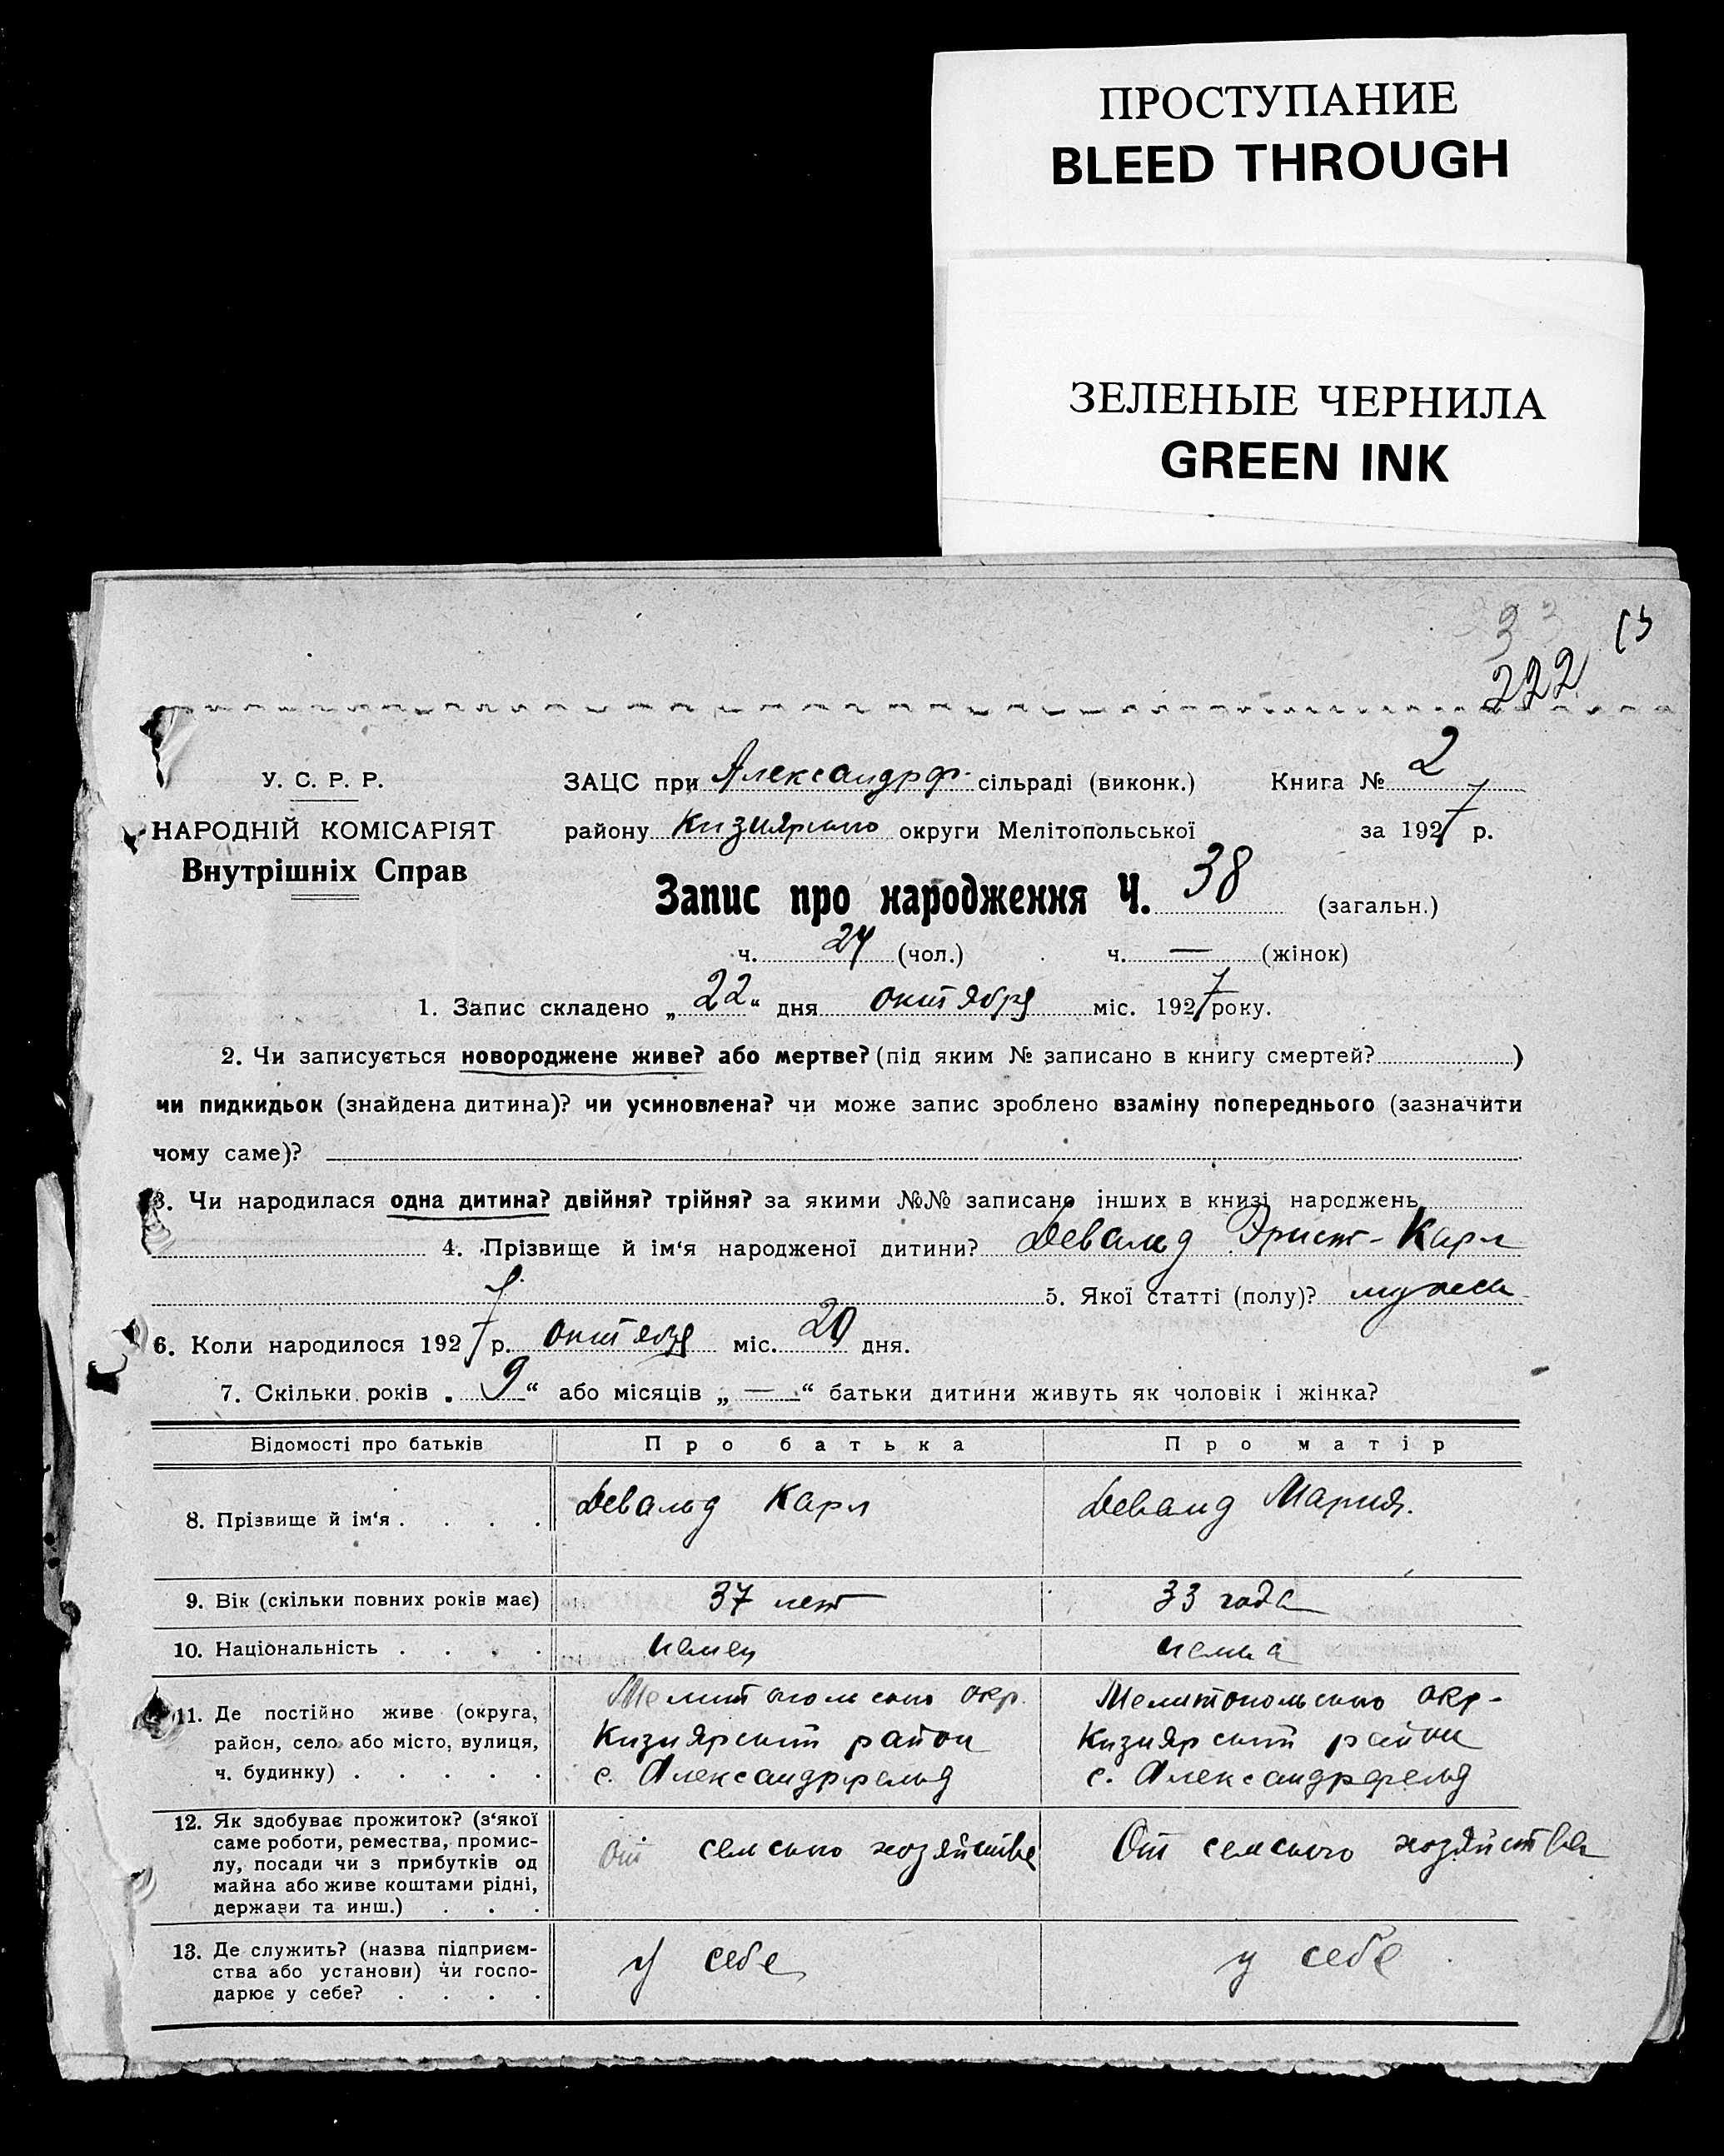 ПРОСТУПАНИЕ
BLEED THROUGH
ЗЕЛЕНЫЕ ЧЕРНИЛА
GREEN INK
222
У. С. Р. Р.
НАРОДНІЙ КОМІСАРІЯТ
Внутрішніх Справ
ЗАЦС при Александрф. сільраді (виконк.) Книга № 2
району Кизиярского округи Мелітопольської за 1927 р.
Запис про народження Ч. 38 (загальн.)
ч. 24 (чол.) ч. — (жінок)
1. Запис складено „22“ дня октября міс. 1927 року.
2. Чи записується новороджене живе? або мертве? (під яким № записано в книгу смертей? )
чи пидкидьок (знайдена дитина)? чи усиновлена? чи може запис зроблено взаміну попереднього (зазначити
чому саме)?
3. Чи народилася одна дитина? двійня? трійня? за якими №№ записано інших в книзі народжень
4. Прізвище й ім‘я народженої дитини? Девальд Эрнст-Карл
5. Якої статті (полу)? мужск
6. Коли народилося 1927 р. октября міс. 20 дня.
7. Скільки років „9“ або місяців „—“ батьки дитини живуть як чоловік і жінка?
Відомості про батьків Про батька Про матір
8. Прізвище й ім‘я . . . . Девальд Карл Девальд Мария.
9. Вік (скільки повних років має) 37 лет 33 года
10. Національність . . . . немец немка
11. Де постійно живе (округа,
район, село або місто, вулиця,
ч. будинку) . . . . .
Мелитопольского окр.
Кизиярский район
с. Александрфельд
Мелитопольского окр-
Кизиярский район
с. Александрфельд
12. Як здобуває прожиток? (з‘якої
саме роботи, ремества, промис-
лу, посади чи з прибутків од
майна або живе коштами рідні,
держави та инш.) . . .
От сельского хозяйства
От сельского хозяйства
13. Де служить? (назва підприєм-
ства або установи) чи госпо-
дарює у себе? . . . .
у себе
у себе